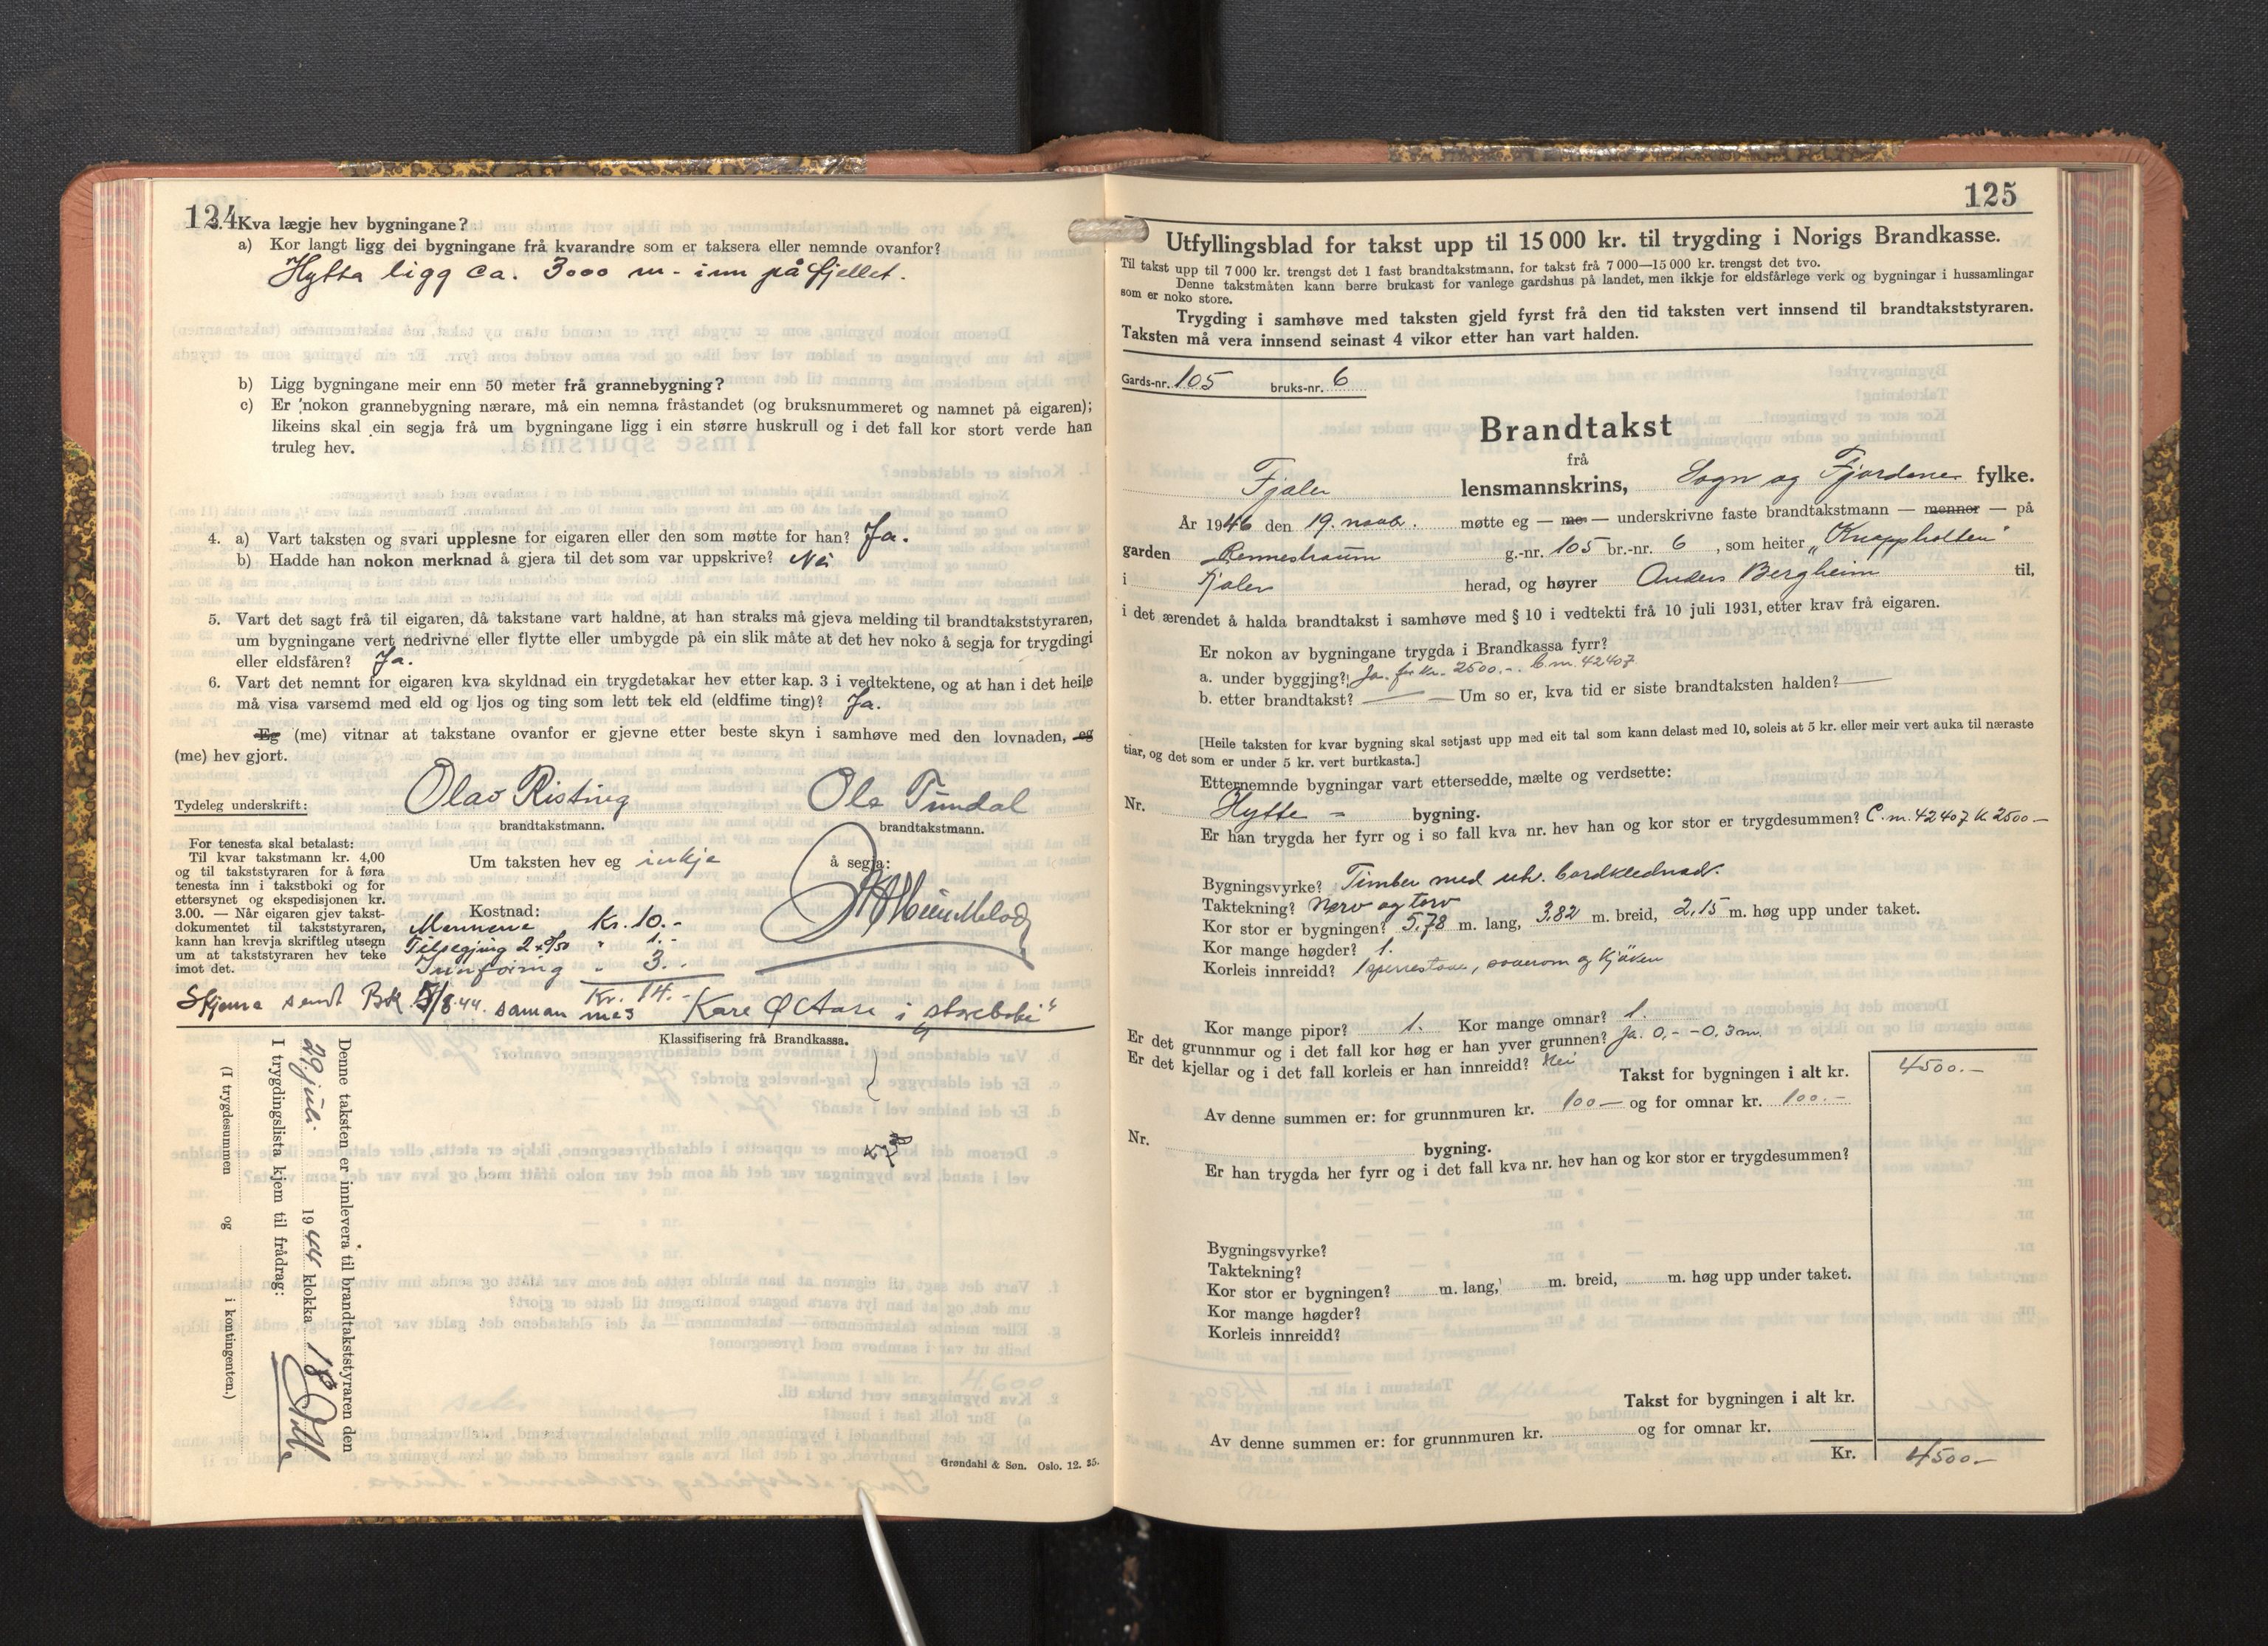 124
3. Kva lægje hev bygningane?
a) Kor langt ligg dei bygningane frå kvarandre som er taksera eller nemnde ovanfor?
Hytta ligg ca. 3000 m - inn på fjellet.
b) Ligg bygningane meir enn 50 meter frå grannebygning?
c) Er nokon grannebygning nærare, må ein nemna fråstandet (og bruksnummeret og namnet på eigaren);
likeins skal ein segja frå um bygningane ligg i ein større huskrull og i det fall kor stort verde han
truleg hev.
4. a) Vart taksten og svari upplesne for eigaren eller den som møtte for han? Ja.
b) Hadde han nokon merknad å gjera til det som var uppskrive? Nei
5. Vart det sagt frå til eigaren, då takstane vart haldne, at han straks må gjeva melding til brandtakststyraren,
um bygningane vert nedrivne eller flytte eller umbygde på ein slik måte at det hev noko å segja for trygdingi
eller eldsfåren? Ja.
6. Vart det nemnt for eigaren kva skyldnad ein trygdetakar hev etter kap. 3 i vedtektene, og at han i det heile
må visa varsemd med eld og ljos og ting som lett tek eld (eldfime ting)? Ja.
Eg (me) vitnar at takstane ovanfor er gjevne etter beste skyn i samhøve med den lovnaden, eg
(me) hev gjort.
Tydeleg underskrift: Olav Risting Ole Tundal
brandtakstmann. brandtakstmann.
For tenesta skal betalast:
Til kvar takstmann kr. 4,00
og til takststyraren for å føra
tenesta inn i takstboki og for
ettersynet og ekspedisjonen kr.
3.00. — Når eigaren gjev takst-
dokumentet til takststyraren,
kann han krevja skriftleg utsegn
um at takststyraren hev teke
imot det.
Um taksten hev eg inkje å segja:
Kostnad:
Mennene Kr. 10.-
Tilsegjing 2 × 0/50 " 1.-
Innføring " 3.-
Kr. 14.-
Skjema sendt Bk 5/8.44. saman med Kare O Aase i storeboki"
Klassifisering frå Brandkassa.
Denne taksten er innlevera til brandtakststyraren den
29 juli 1944 klokka 18
I trygdingslista kjem til frådrag:
(I trygdesummen og i kontingenten.)
Grøndahl & Søn. Oslo. 12. 35.
125
Utfyllingsblad for takst upp til 15 000 kr. til trygding i Norigs Brandkasse.
Til takst upp til 7 000 kr. trengst det 1 fast brandtakstmann, for takst frå 7 000—15 000 kr. trengst det tvo.
Denne takstmåten kann berre brukast for vanlege gardshus på landet, men ikkje for eldsfårlege verk og bygningar i hussamlingar
som er noko store.
Trygding i samhøve med taksten gjeld fyrst frå den tid taksten vert innsend til brandtakststyraren.
Taksten må vera innsend seinast 4 vikor etter han vart halden.
Gards-nr. 105 bruks-nr. 6
Brandtakst
frå
Fjaler lensmannskrins, Sogn og Fjordane fylke.
År 1946 den 19. novbr. møtte eg — me — underskrivne faste brandtakstmann — menner — på
garden Rennestraum g.-nr. 105 br.-nr. 6, som heiter „Knappholten"
i Fjaler herad, og høyrer Anders Bergheim til,
i det ærendet å halda brandtakst i samhøve med § 10 i vedtekti frå 10 juli 1931, etter krav frå eigaren.
Er nokon av bygningane trygda i Brandkassa fyrr?
a. under byggjing? Ja. for kr. 2500.-. C.m. 42407
b. etter brandtakst? — Um so er, kva tid er siste brandtaksten halden? —
[Heile taksten for kvar bygning skal setjast upp med eit tal som kann delast med 10, soleis at 5 kr. eller meir vert auka til næraste
tiar, og det som er under 5 kr. vert burtkasta.]
Etternemnde bygningar vart ettersedde, mælte og verdsette:
Nr. Hytte - bygning.
Er han trygda her fyrr og i so fall kva nr. hev han og kor stor er trygdesummen? C.m. 42407 k 2500 —
Bygningsvyrke? Timber med utv. bordklednad.
Taktekning? Nerv og torv
Kor stor er bygningen? 5,78 m. lang, 3,82 m. breid, 2,15 m. høg upp under taket.
Kor mange høgder? 1.
Korleis innreidd? 1 sperrestove, soverom og kjøken
Kor mange pipor? 1. Kor mange omnar? 1.
Er det grunnmur og i det fall kor høg er han yver grunnen? Ja. 0,- - 0,3 m.
Er det kjellar og i det fall korleis er han innreidd? Nei
Takst for bygningen i alt kr. 4500.-
Av denne summen er: for grunnmuren kr. 100 — og for omnar kr. 100.-
Nr. bygning.
Er han trygda her fyrr og i det fall kva nr. hev han og kor stor er trygdesummen?
Bygningsvyrke?
Taktekning?
Kor stor er bygningen? m. lang, m. breid, m. høg upp under taket.
Kor mange høgder?
Korleis innreidd?
Takst for bygningen i alt kr.
Av denne summen er: for grunnmuren kr. og for omnar kr.
Kr. 4500.-